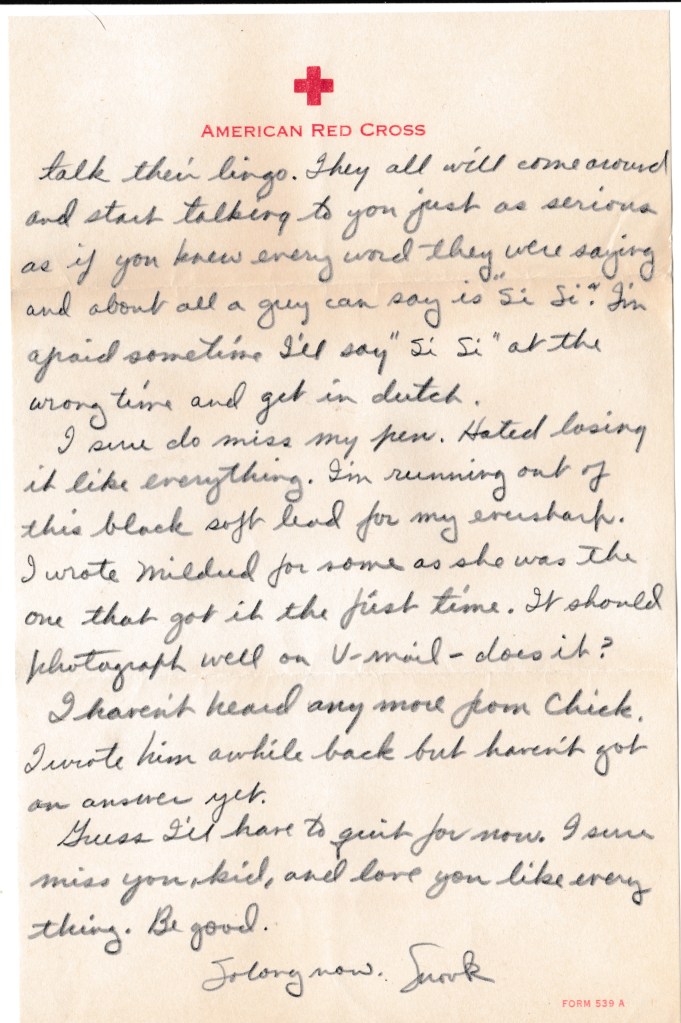 AMERICAN RED CROSS
talk their lingo. They all will come around
and start talking to you just as serious
as if you knew every word they were saying
and about all a guy can say is "Si Si". I'm
afraid sometime I'll say "Si Si" at the
wrong time and get in dutch.
I sure do miss my pen. Hated losing
it like everything. I'm running out of
this black soft lead for my eversharp.
I wrote Mildred for some as she was the
one that got it the first time. It should
photograph well on V-mail - does it?
I haven't heard any more from Chick.
I wrote him awhile back but haven't got
an answer yet.
Guess I'll have to quit for now. I sure
miss you, kid, and love you like every
thing. Be good.
So long now. Snook
FORM 539 A